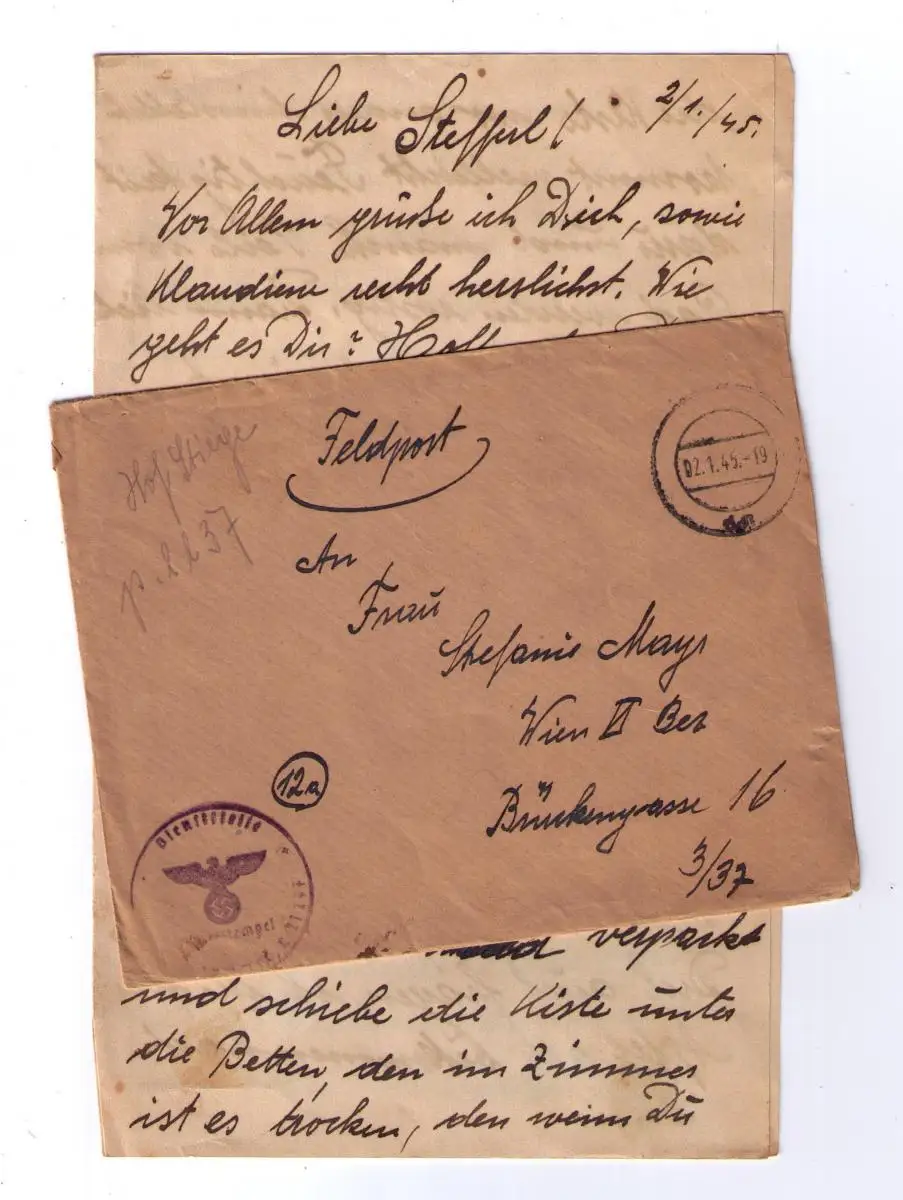 Liebe Stefferl! 2/1./45.
Vor Allem grüße ich Dich, sowie
Klaudiene recht herzlichst. Wie
geht es Dir?
Hof Stiege
Feldpost
02.1.45.-19
An
Frau
Stefanie Mayr
Wien VI Bez
Brückengasse 16
3/37
12a
Dienststelle
verpackt
und schiebe die Kiste unter
die Betten, den im Zimmer
ist es trocken, den wenn Du